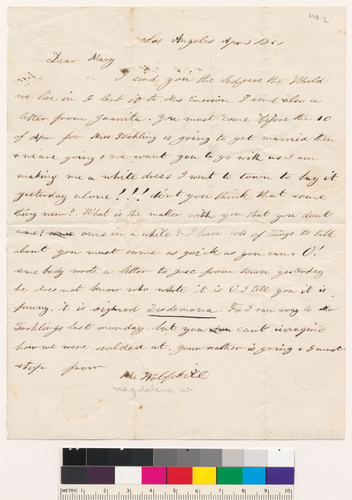 no. 2
Los Angeles Apr 3 1861
Dear Mary
I send you the Ledgers the World
we live in I lent it to Mrs Emerson I send also a
letter from Juanita. You must come before the 10
of Apr for Miss Fockling is going to get married then
& we are going & we want you to go with us I am
making me a white dress I went to town to buy it
yesterday alone!!! don't you think that some
thing new? What is the matter with you that you dont
come once in a while? I have lots of tings to tell
about you must come as quick as you can. O!
some body wrote a letter to Joe from town yesterday
he does not know who wrote it is O I tell you it is
funny. it is sighned Desdemona. F & I ran away to the
Focklings last monday. but you cant imagine
how we were scolded at. your mother is going & I must
stop from
Wolfskill
magdalena w
METRIC 1 2 3 4 5 6